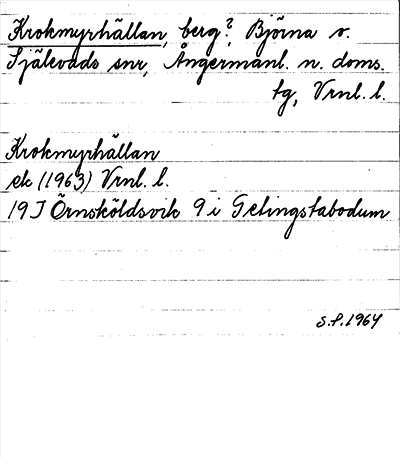 Krokmyrhällan, berg?, Björna s.
Själevads snr, Ångermanl. n. doms.
tg, Vrnl. l.
Krokmyrhällan
ek (1963) Vrnl. l.
19 J Örnsköldsvik 9 i Getingstabodum
S.P. 1964